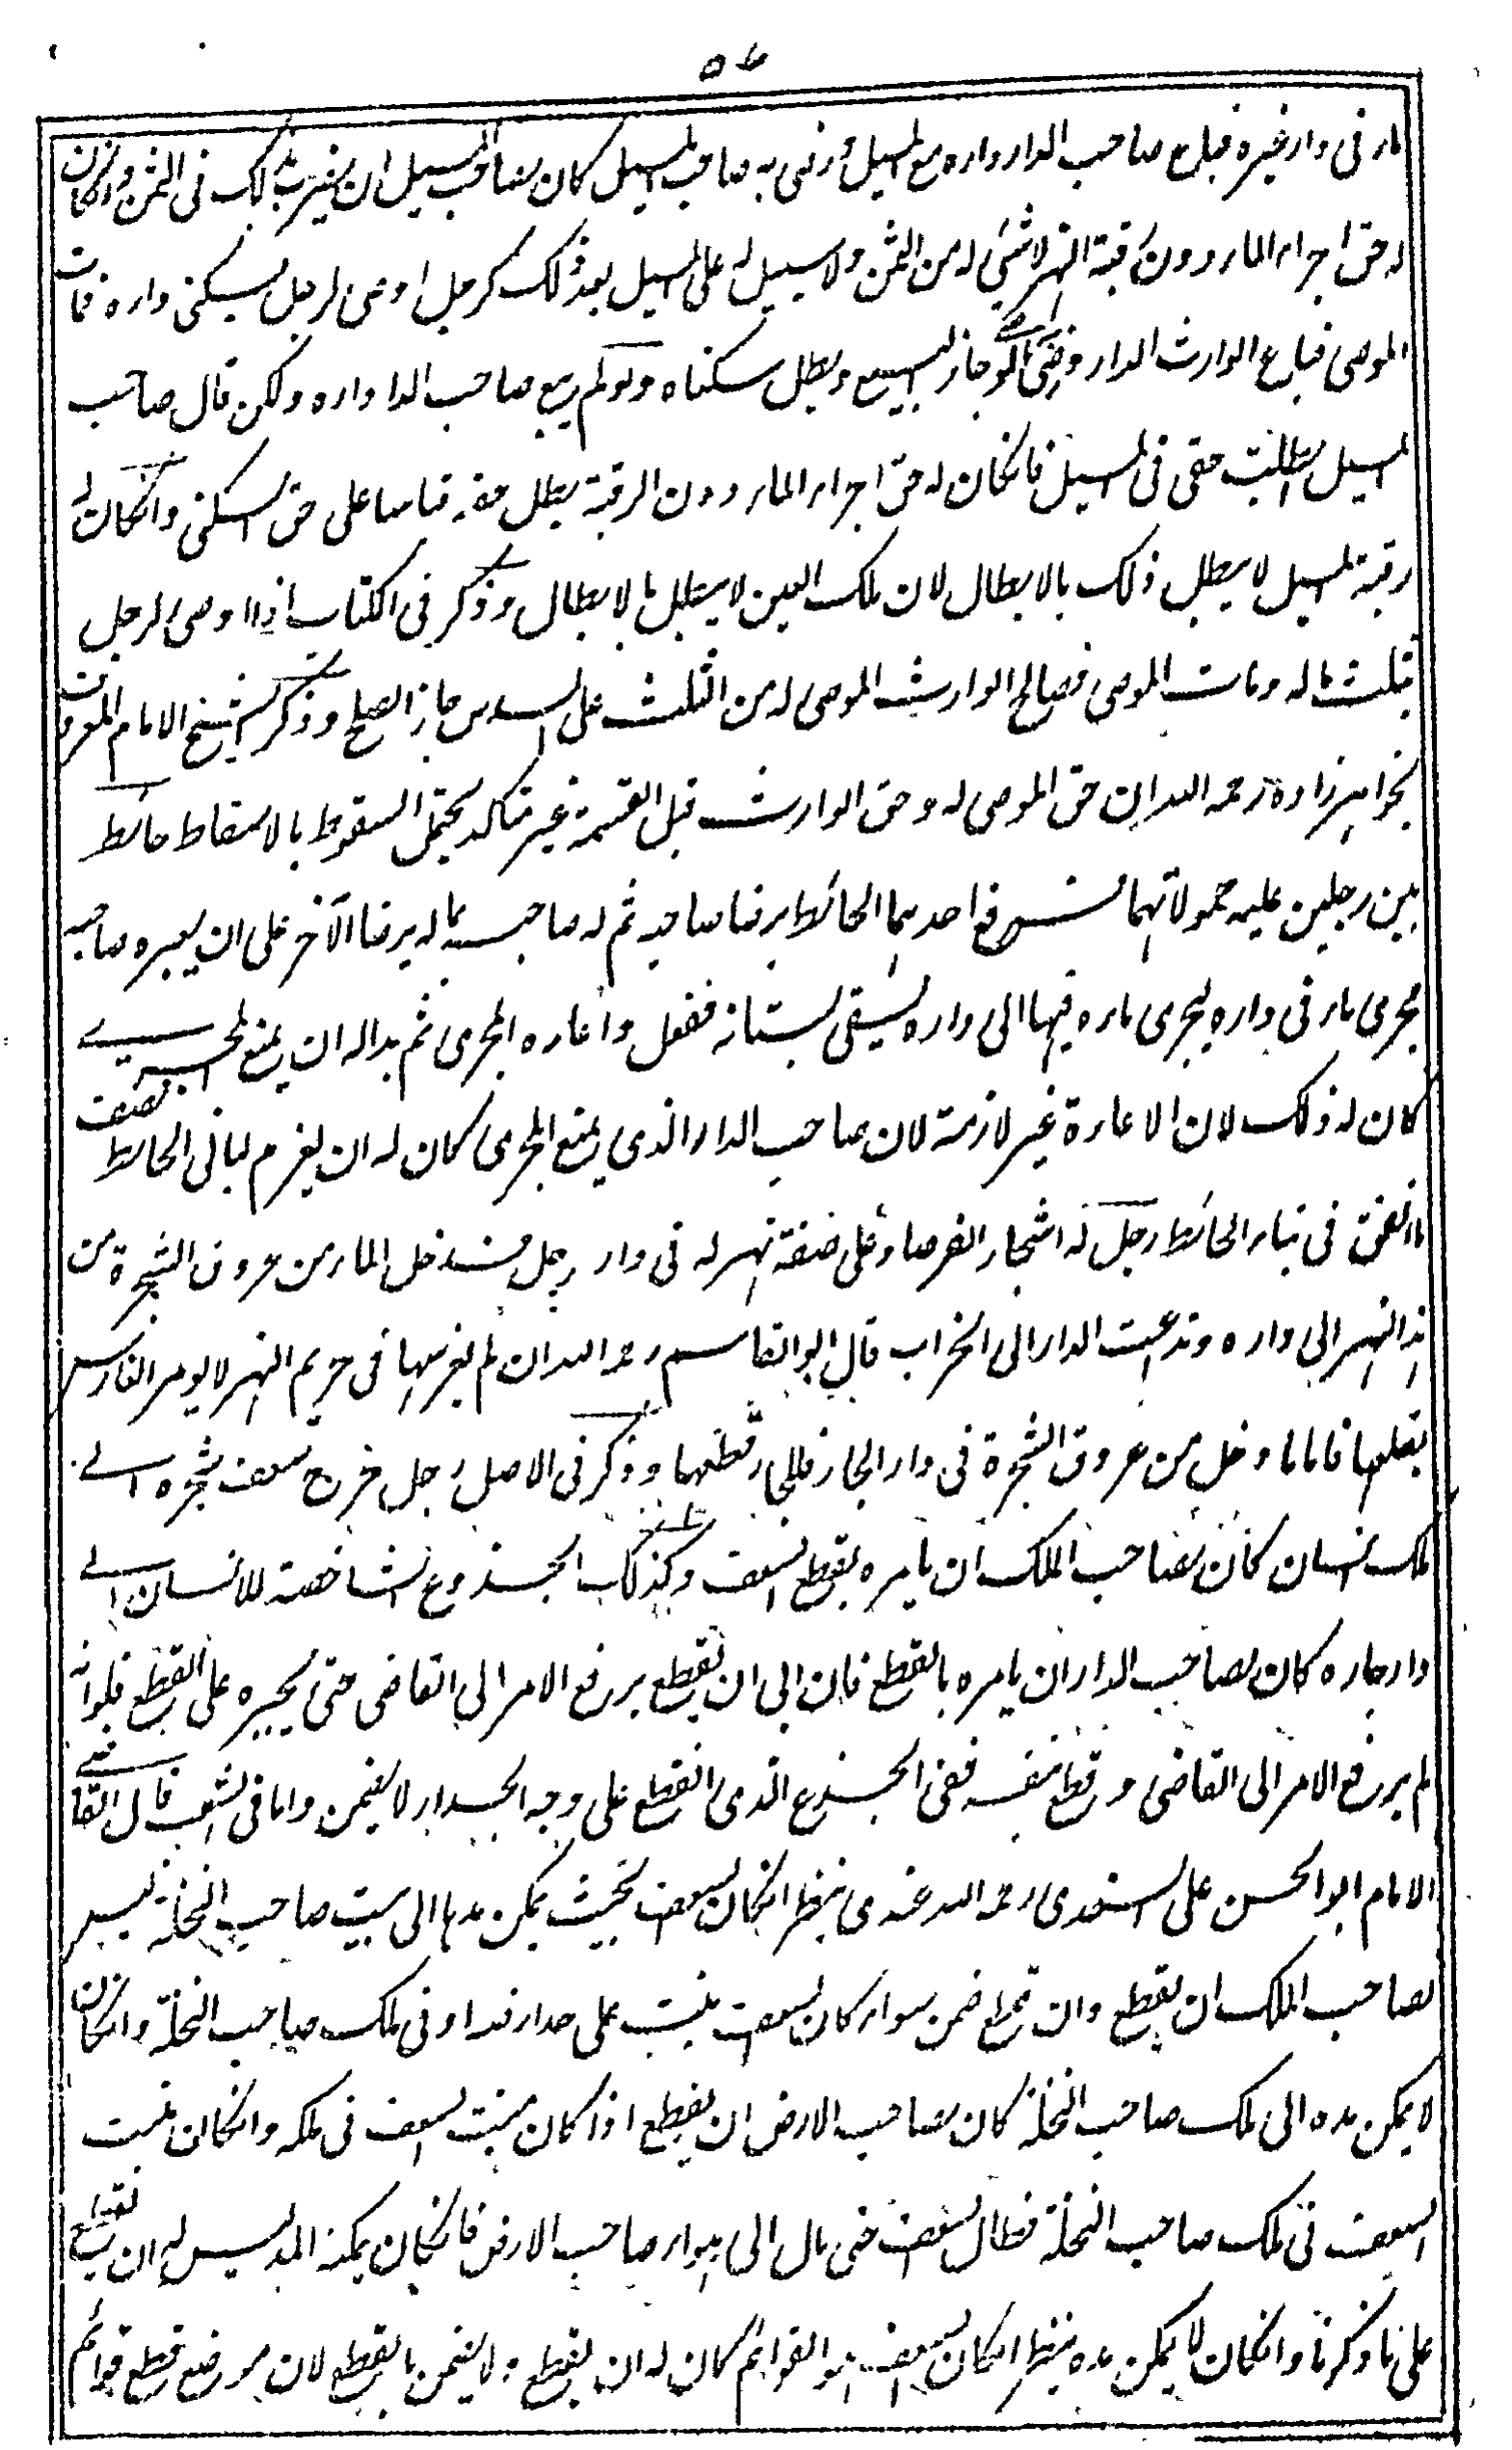 ٥٦
ماء في دار غيره فباع صاحب الدار داره مع المسيل ورضي به صاحب المسيل كان لصاحب المسيل ان يضرب بذلك في الثمن وانكان
له حق اجراء الماء دون رقبة النهر لا شئ له من الثمن ولا سبيل له على المسيل بعد ذلك كرجل اوصى لرجل بسكنى داره فمات
الموصي فباع الوارث الدار ورضي به الموصى له جاز البيع وبطل سكناه ولو لم يبع صاحب الدار داره ولكن قال صاحب
المسيل ابطلت حقي في المسيل فانكان له حق اجراء الماء دون الرقبة بطل حقه قياسا على حق السكنى وانكان له
رقبة المسيل لا يبطل ذلك بالابطال لان ملك العين لا يبطل بالابطال وذكر في الكتاب اذا اوصى لرجل
بثلث ماله ومات الموصي فصالح الوارث الموصى له من الثلث على السدس جاز الصلح وذكر الشيخ الامام المعروف
بخواهر زاده رحمه الله ان حق الموصى له وحق الوارث قبل القسمة غير متاكد يحتمل السقوط بالاسقاط حائط
بين رجلين عليه حمولاتهما فرفع احدهما الحائط برضا صاحبه ثم له صاحبه بماله برضا الآخر على ان يعيره صاحبه
مجرى ماء في داره ليجري ماءه فيها الى داره ليسقي بستانه ففعل واعاره المجرى ثم بدا له ان يمنع المجرى
كان له ذلك لان الاعارة غير لازمة لان صاحب الدار الذي يمنع المجرى كان له ان يغرم لباني الحائط نصف
ما انفق في بناء الحائط رجل له اشجار الفرصاد على ضفة نهر له في دار رجل فدخل الماء من عروق الشجرة من
هذا النهر الى داره وتداعيت الدار الى الخراب قال ابو القاسم رحمه الله ان لم يغرسها في حريم النهر لا يومر الغارس
بقلعها فاما ما دخل من عروق الشجرة في دار الجار فللجار قطعها وذكر في الاصل رجل خرج سعف شجره الى
ملك انسان كان لصاحب الملك ان يامره بقطع السعف وكذلك الجذوع الشاخصة للانسان الى
دار جاره كان لصاحب الدار ان يامره بالقطع فان ابى ان يقطع يرفع الامر الى القاضي حتى يجبره على القطع فلو انه
لم يرفع الامر الى القاضي وقطع بنفسه ففي الجذوع الذي انقطع على وجه الجدار لا يضمن واما في السعف قال القاضي
الامام ابو الحسن علي السغدي رحمه الله عندي ينظر انكان السعف بحيث يمكن مدها الى بيت صاحب النخلة ليس
لصاحب الملك ان يقطع وان قطع ضمن سواء كان السعف ينبت على جدار هذا او في ملك صاحب النخلة وانكان
لا يمكن مده الى ملك صاحب النخلة كان لصاحب الارض ان يقطع اذا كان منبت السعف في ملكه وانكان منبت
السعف في ملك صاحب النخلة فطال السعف حتى مال الى هواء صاحب الارض فانكان يمكنه المد ليس له ان يقطع
على ما ذكرنا وانكان لا يمكن مده ينظر انكان السعف هو القوائم كان له ان يقطع ولا يضمن بالقطع لان موضع قطع قوائم